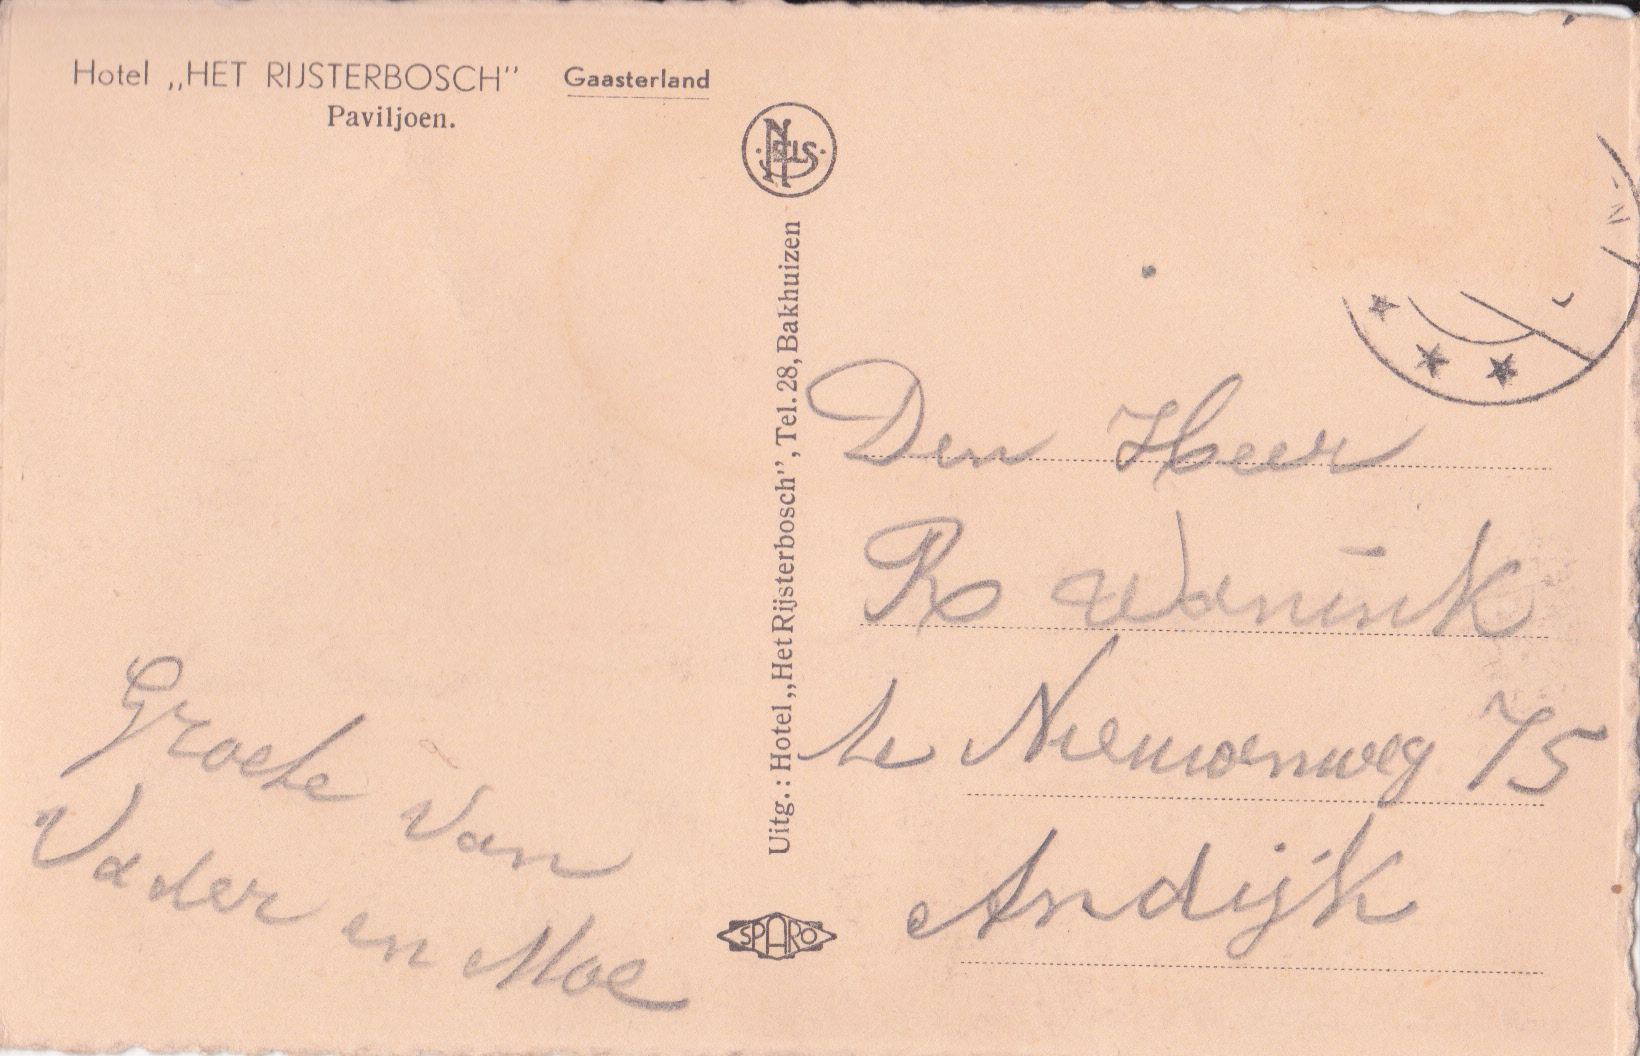 Hotel „HET RIJSTERBOSCH” Gaasterland
Paviljoen.
NELS
Uitg.: Hotel „Het Rijsterbosch”, Tel. 28, Bakhuizen
SPARO
Groete van
Vader en Moe
Den Heer
R
te Nieuwenweg 75
Andijk